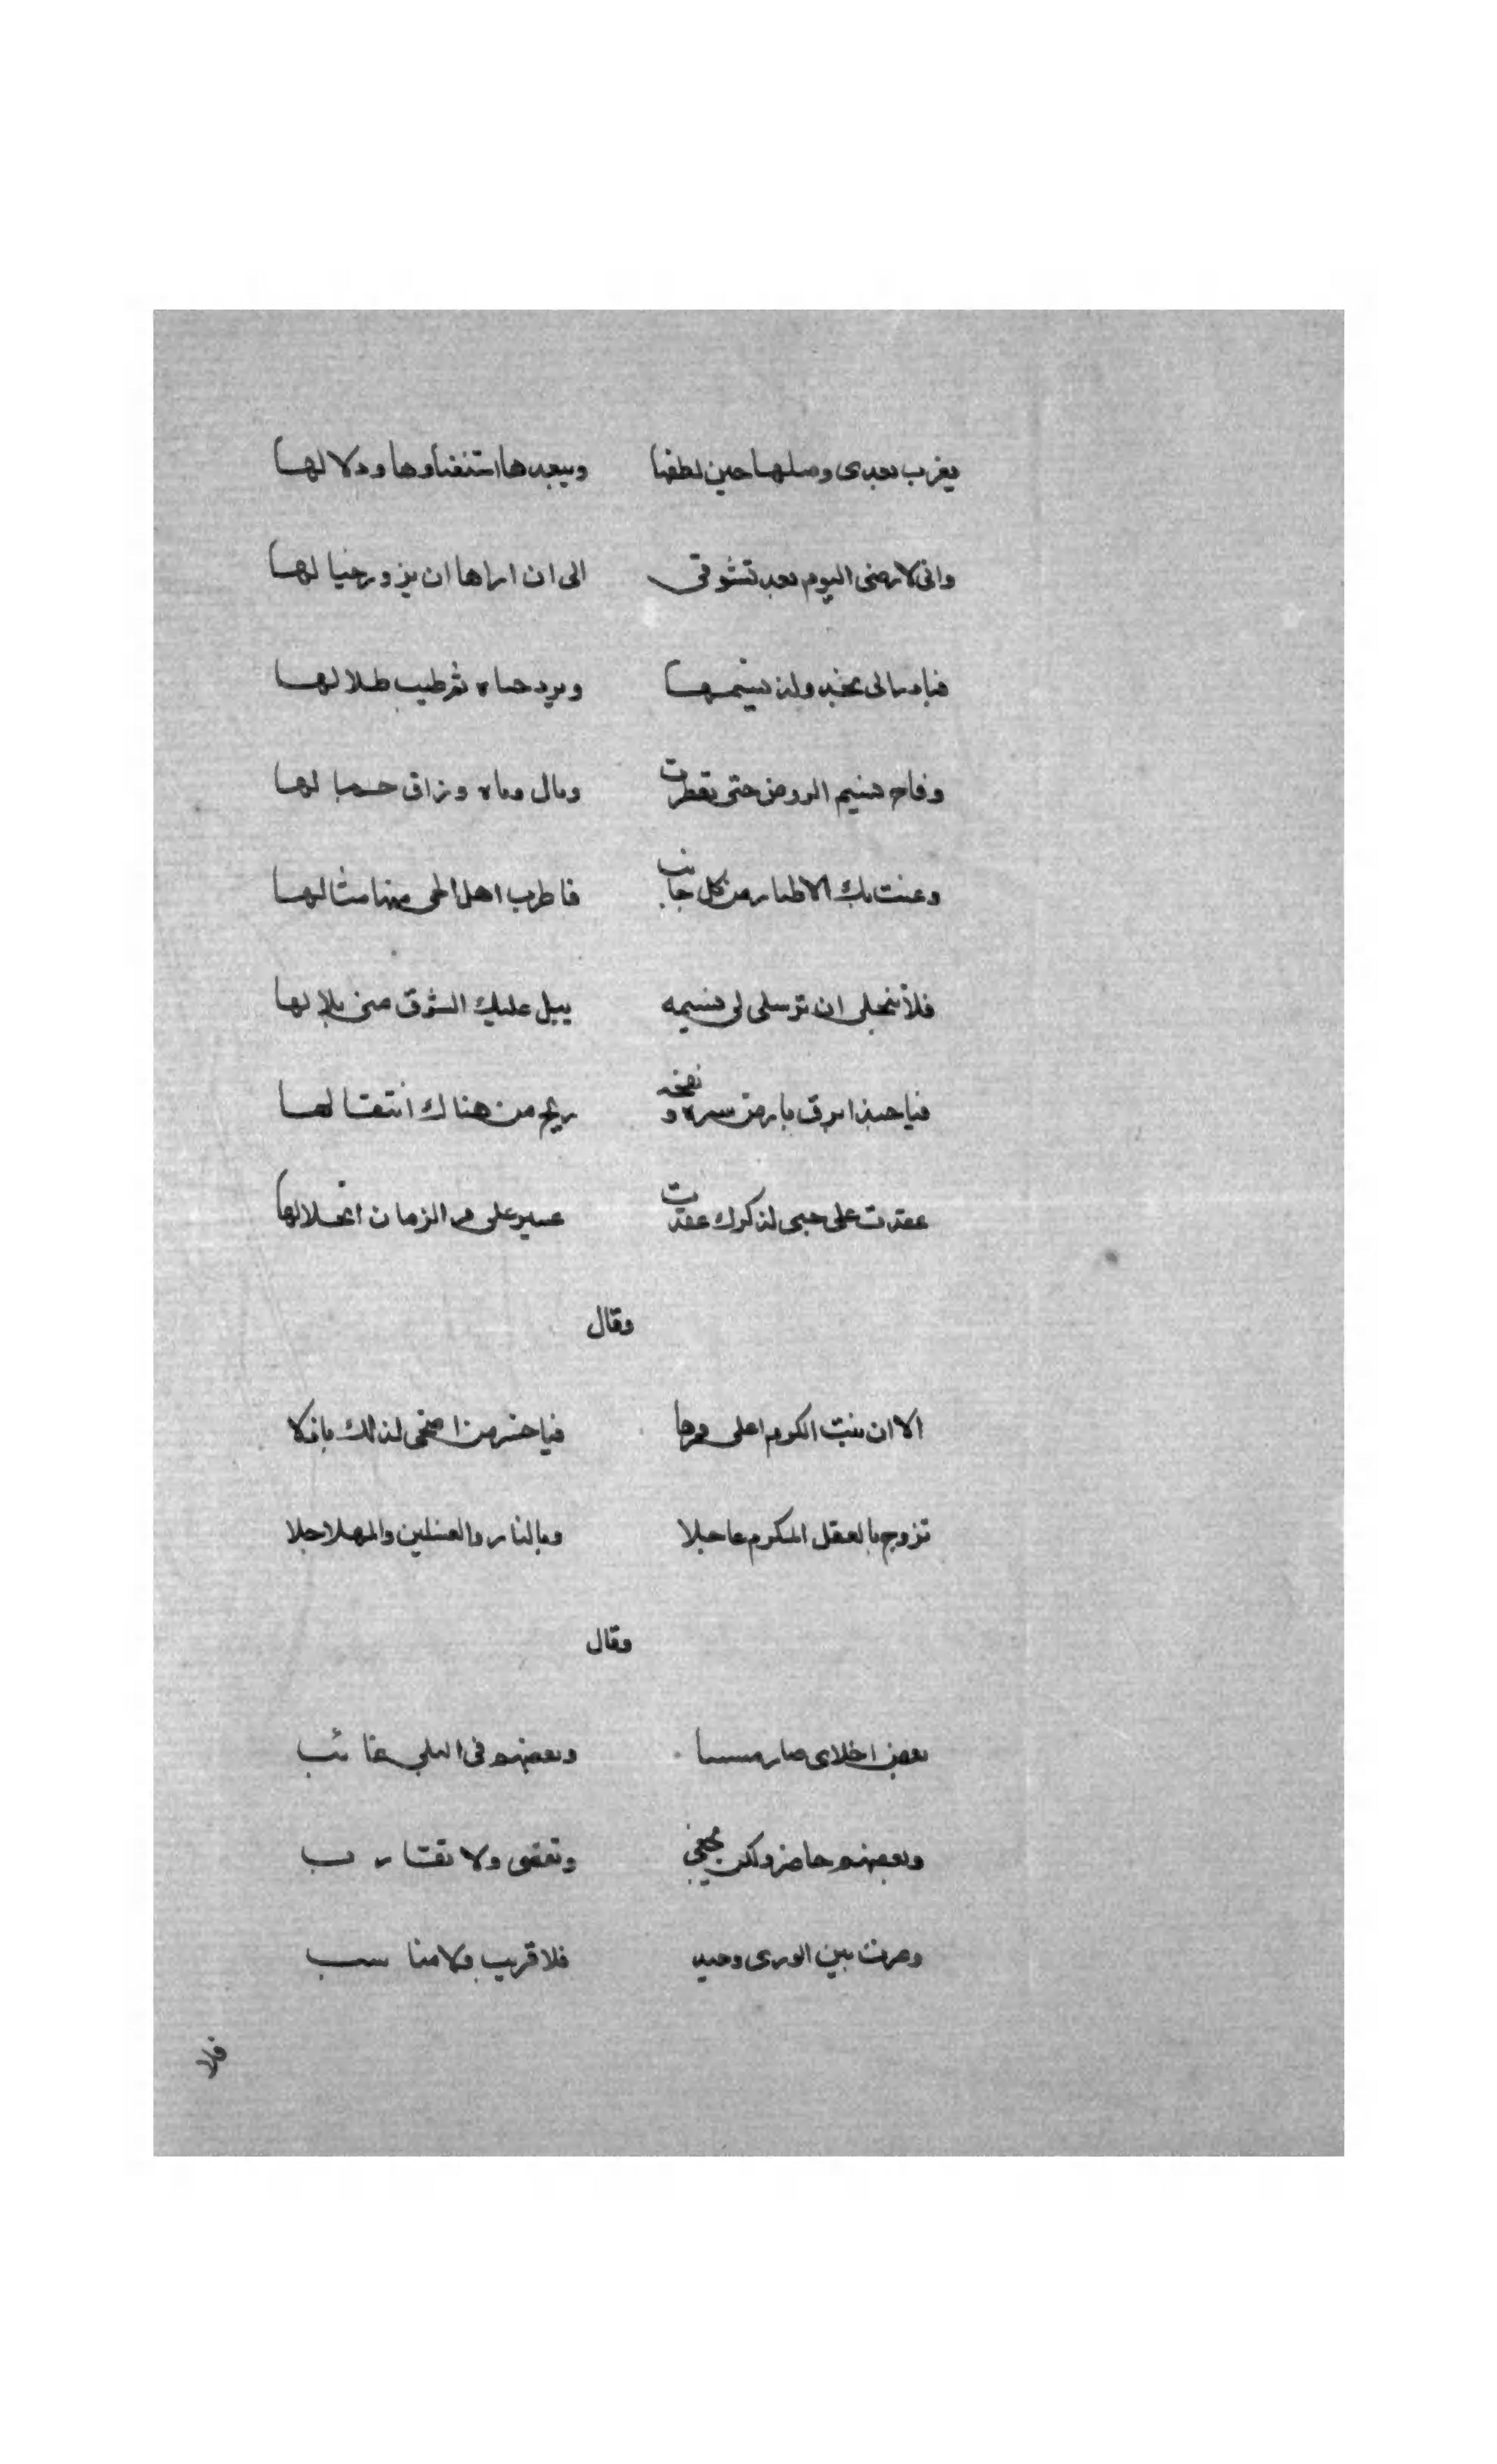 يقرب بعدى وصلها حين لطفها ويبعدها استغناوها ودلالها
وانى لارضى اليوم بعد تشوقى الى ان اراها ان يزور خيالها
فيا دارا لى نجد ولذ نسيمها وبرد حماه ثم طيب ظلالها
وفاح نسيم الروض حتى تعطرت ومال وماه وزاق حبالها
وغنت بك الاطيار من كل جانب فاطرب اهل الحى منها مثالها
فلا تبخلى ان ترسلى لى نسيمه يبل عليك الشوق منى بلالها
فيا حبذا برق بارض سره ونفحه ريح من هناك انتقالها
عقدت على حبى لذكرك عقدت عسير على مر الزمان انحلالها
وقال
الا ان بنت الكرم اعلى مهرها فيا خسر من اضحى لذلك باذلا
تزوج بالعقل المكرم عاجلا وبالنار والغسلين والمهل اجلا
وقال
بعض اخلاى صار ميتا وبعضهم فى البلى غائب
وبعضهم حاضر ولكن يحصى ويقصى ولا يقارب
وصرت بين الورى وحيد فلا قريب ولا مناسب
فلا